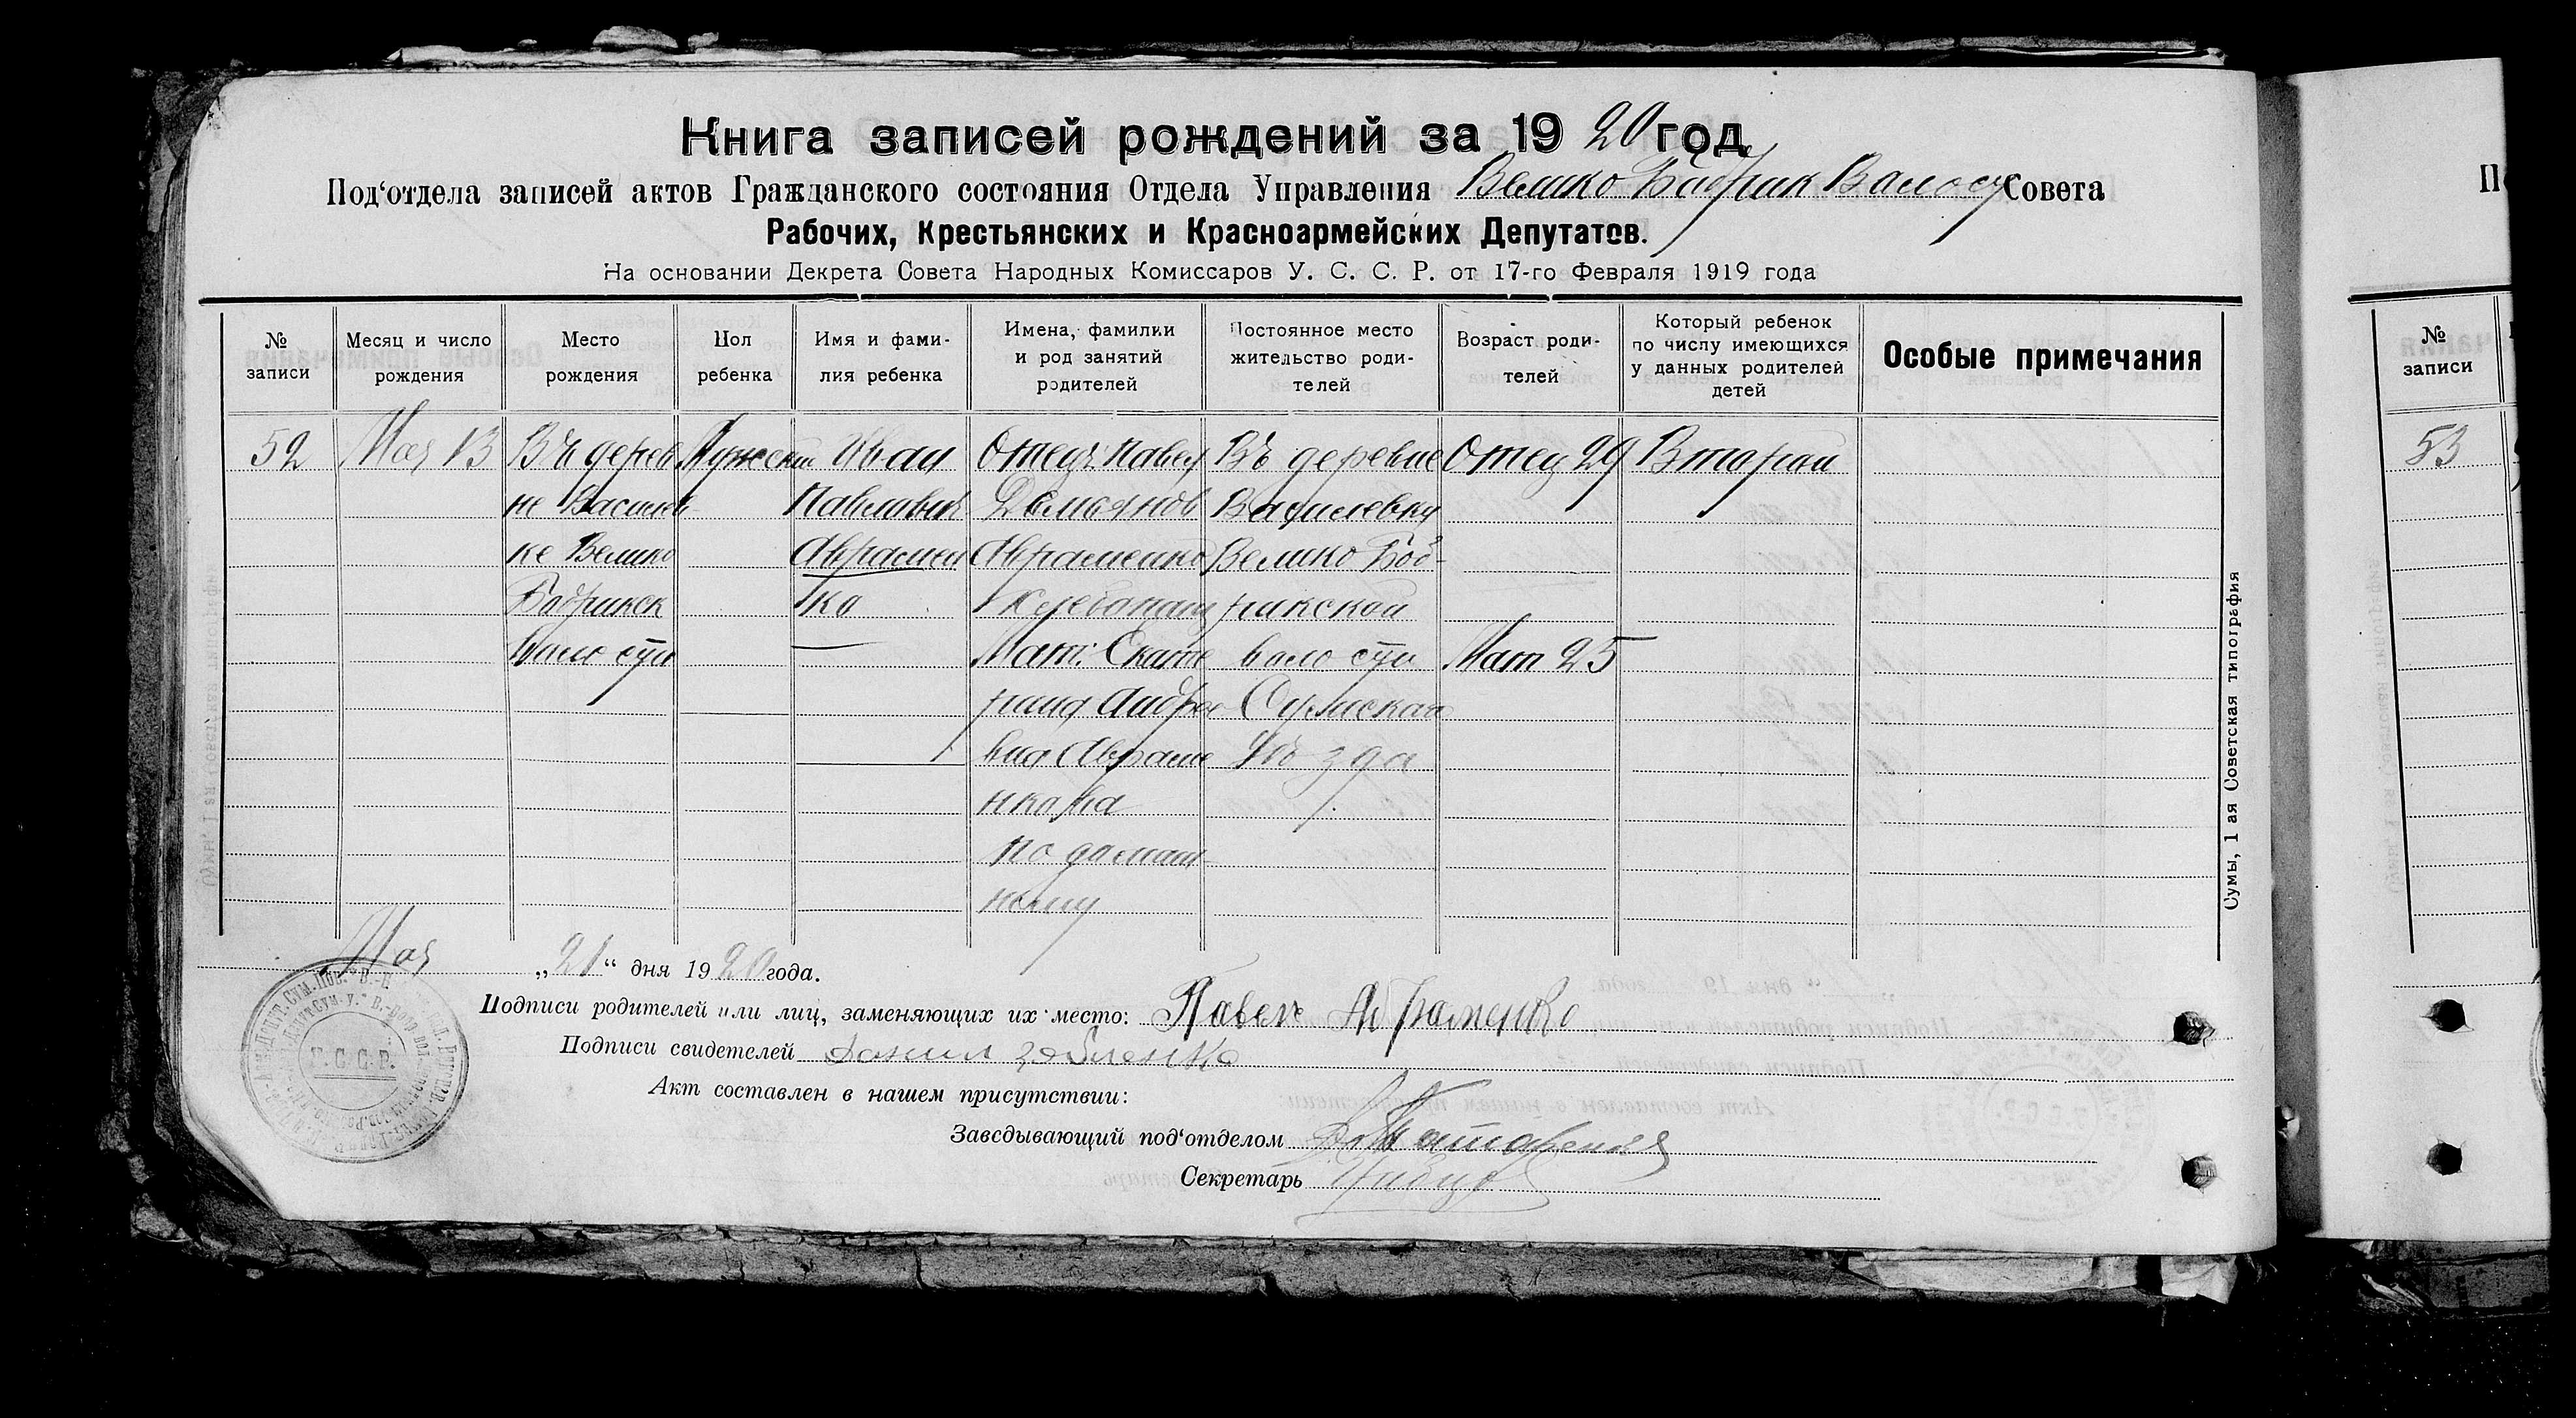 Книга записей рождений за 1920 год
Под‘отдела записей актов Гражданского состояния Отдела Управления Велико Бобрик Волосу Совета
Рабочих, Крестьянских и Красноармейских Депутатов.
На основании Декрета Совета Народных Комиссаров У. С. С. Р. от 17-го Февраля 1919 года
№ записи
Месяц и число рождения
Место рождения
Пол ребенка
Имя и фами-
лия ребенка
Имена, фамилии
и род занятий
родителей
Постоянное место
жительство роди-
телей
Возраст роди-
телей
Который ребенок
по числу имеющихся
у данных родителей
детей
Особые примечания
52
Мая 13
Въ дерев
не Василев
ке Велико
Бобрикск
Воло сти
Мужскии
Иван
Павлавич
Аврамен
ко
Отец Павел
Демьянов
Авраменко
Хлебопащ
Мат: Екате
рина Андре
вна Авраме
нкова
по домаш
нему
Въ деревне
Василевки
Велико Боб-
рикской
воло сти
Сумскаго
Уѣзда
Отец 29
Мат 25
Второй
Мая „21“ дня 1920 года.
Подписи родителей или лиц, заменяющих их место: Павел Авраменко
Подписи свидетелей Данил
Акт составлен в нашем присутствии:
Заведывающий под‘отделом
Секретарь
У.С.С.Р.
Сумы, 1 ая Советская типография
№
записи
53